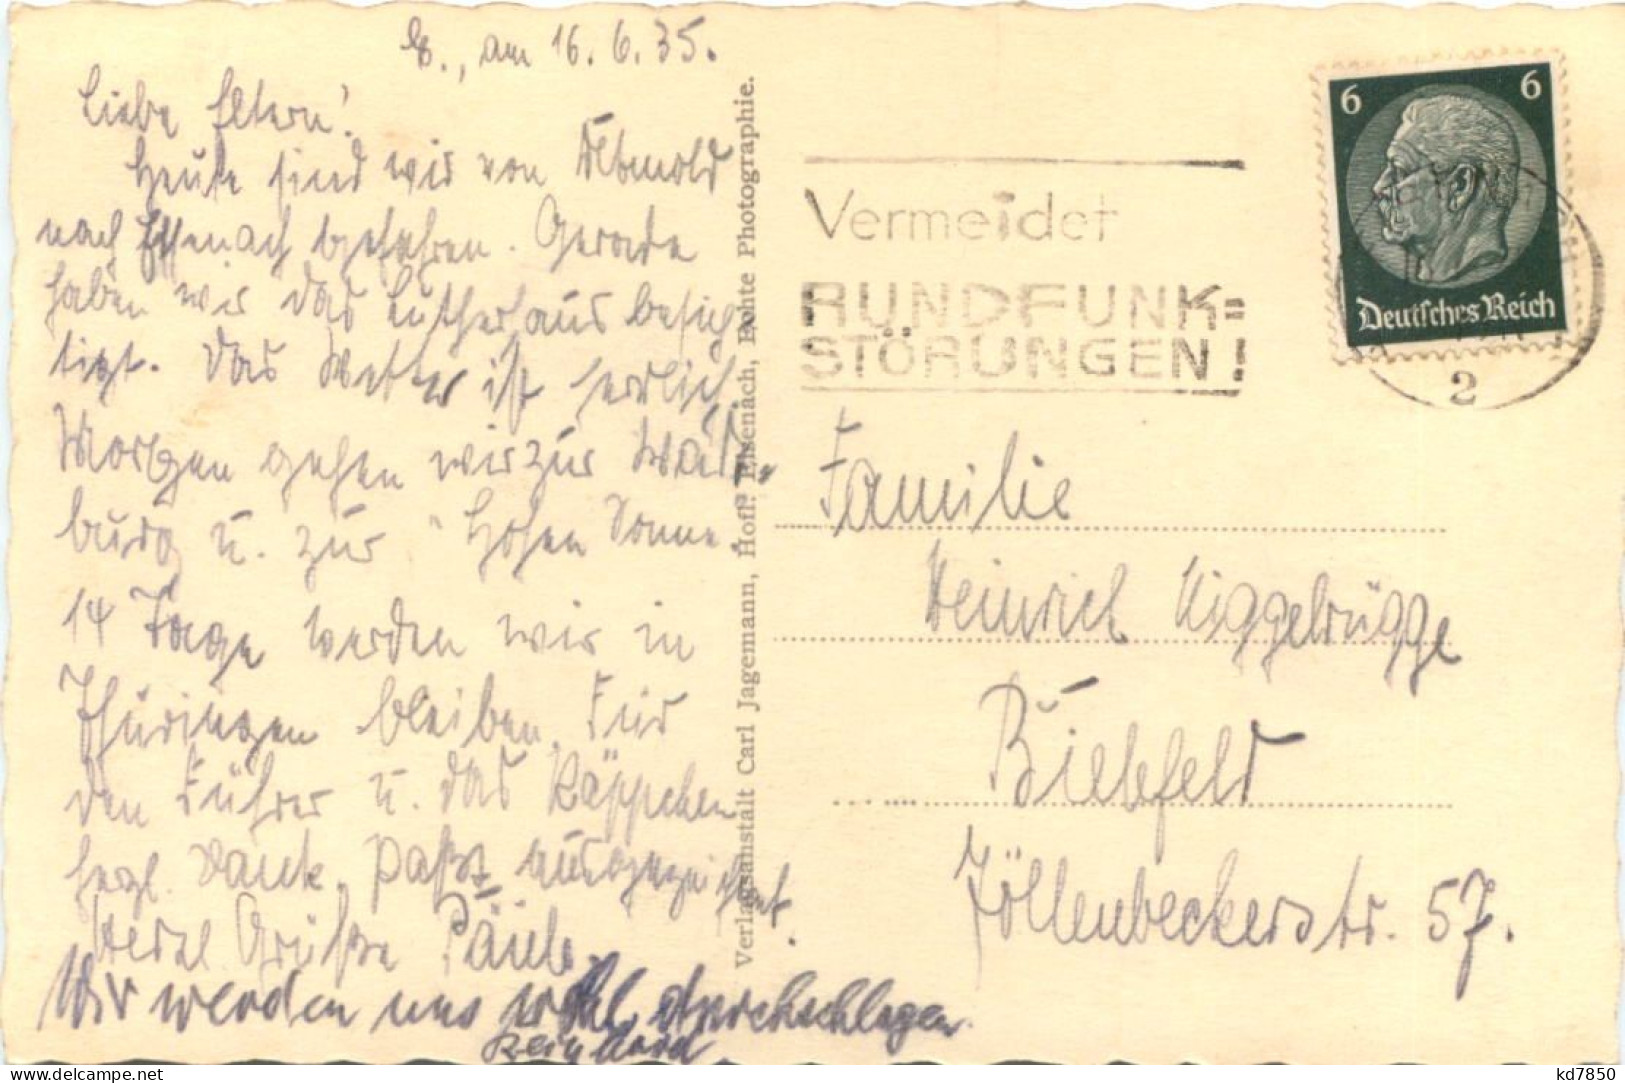 E., am 16.6.35.
Liebe Eltern!
Heute sind wir von Detmold
nach Eisenach gefahren. Gerade
haben wir das Lutherhaus besich
tigt. Das Wetter ist herrlich.
Morgen gehen wir zur Wart-
burg u. zur "Hohen Sonne.
14 Tage werden wir in
Thüringen bleiben. Für
den Führer u. das Käppchen
herzl. Dank. Paßt ausgezeichnet.
Herzl. Grüße
Wir werden uns wohl durchschlagen
Reinhard
Verlagsanstalt Carl Jagemann, Hofl. Eisenach, Echte Photographie.
6 6
Deutsches Reich
Vermeidet
RUNDFUNK-
STÖRUNGEN!
2
Familie
Heinrich Niggebrügge
Bielefeld
Jöllenbeckerstr. 57.
kd7850